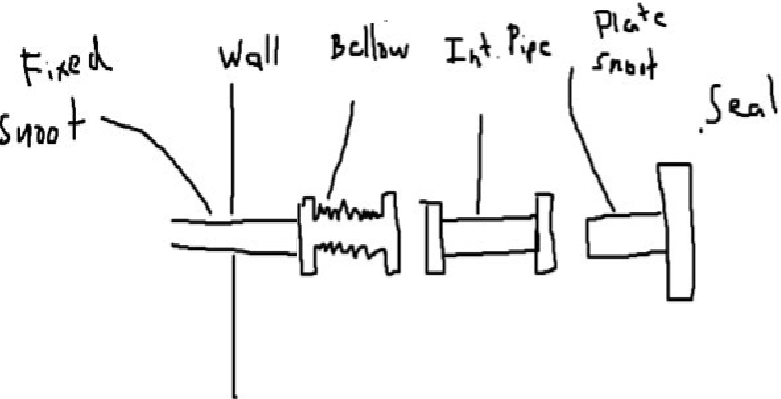 Fixed
snoot
Wall
Bellow
Int. Pipe
Plate
snoot
.Seal